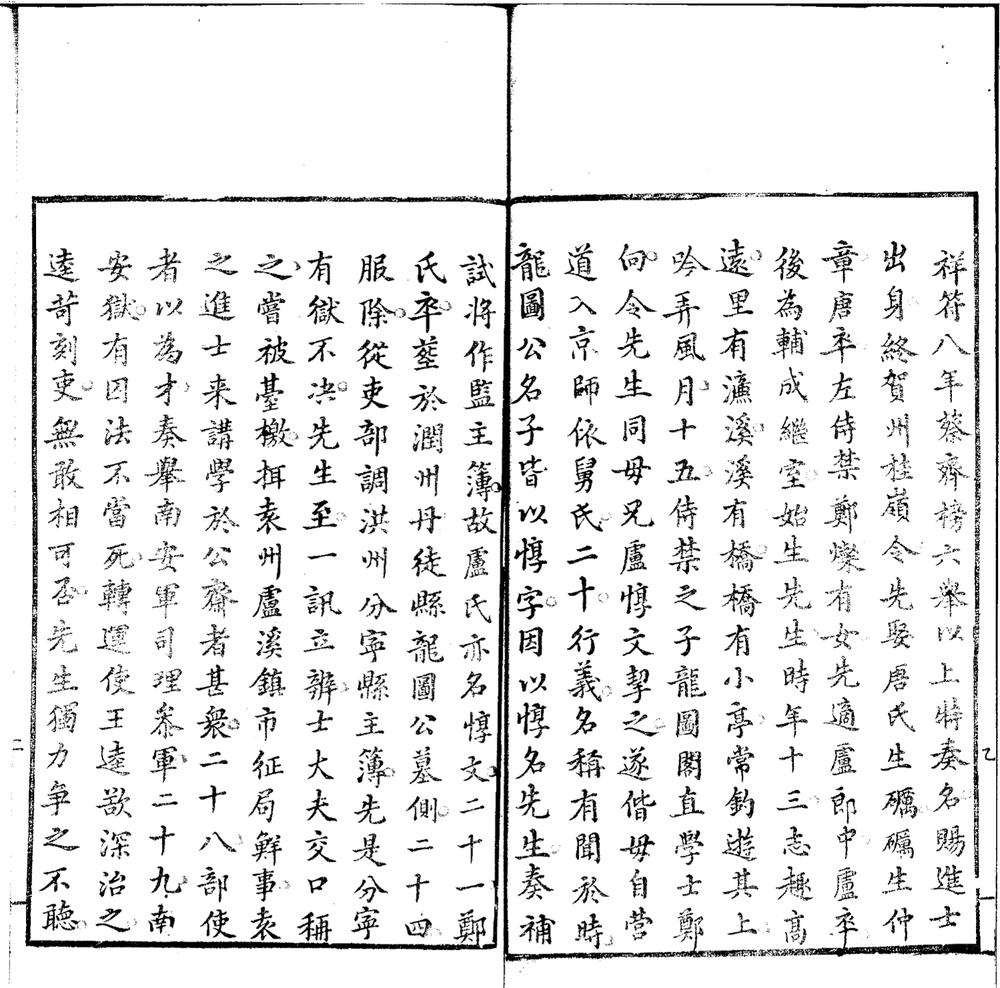 祥符八年蔡齊榜六舉以上特奏名賜進士
出身終賀州桂嶺令先娶唐氏生礪礪生仲
章唐卒左侍禁鄭燦有女先適盧郎中盧卒
後為輔成繼室始生先生時年十三志趣高
遠里有濂溪溪有橋橋有小亭常釣遊其上
吟弄風月十五侍禁之子龍圖閣直學士鄭
向令先生同母兄盧惇文挈之遂偕母自營
道入京師依舅氏二十行義名稱有聞於時
龍圖公名子皆以惇字因以惇名先生奏補
試將作監主簿故盧氏亦名惇文二十一鄭
氏卒塟於潤州丹徒縣龍圖公墓側二十四
服除從吏部調洪州分寧縣主簿先是分寧
有獄不决先生至一訊立辨士大夫交口稱
之嘗被臺檄揖袁州盧溪鎮市征局鮮事袁
之進士来講學於公齋者甚衆二十八部使
者以為才奏舉南安軍司理叅軍二十九南
安獄有囚法不當死轉運使王逵欲深治之
逵苛刻吏無敢相可否先生獨力爭之不聽
二